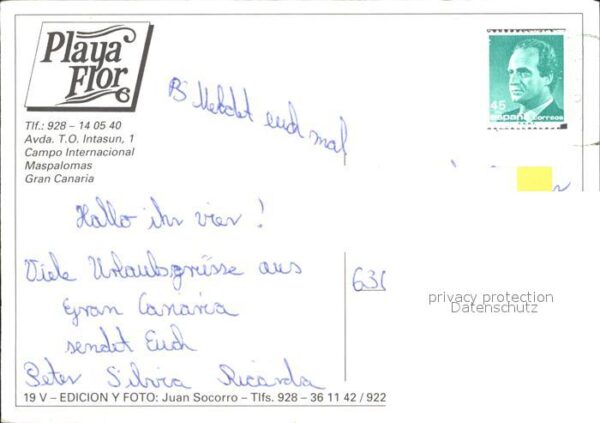 Playa
Flor
Tlf.: 928 – 14 05 40
Avda. T.O. Intasun, 1
Campo Internacional
Maspalomas
Gran Canaria
Meldet euch mal
45
españa correos
Hallo ihr vier !
Viele Urlaubsgrüsse aus
Gran Canaria
sendet Euch
Peter Silvia Ricarda
privacy protection
Datenschutz
19 V – EDICION Y FOTO: Juan Socorro – Tlfs. 928 – 36 11 42 / 922